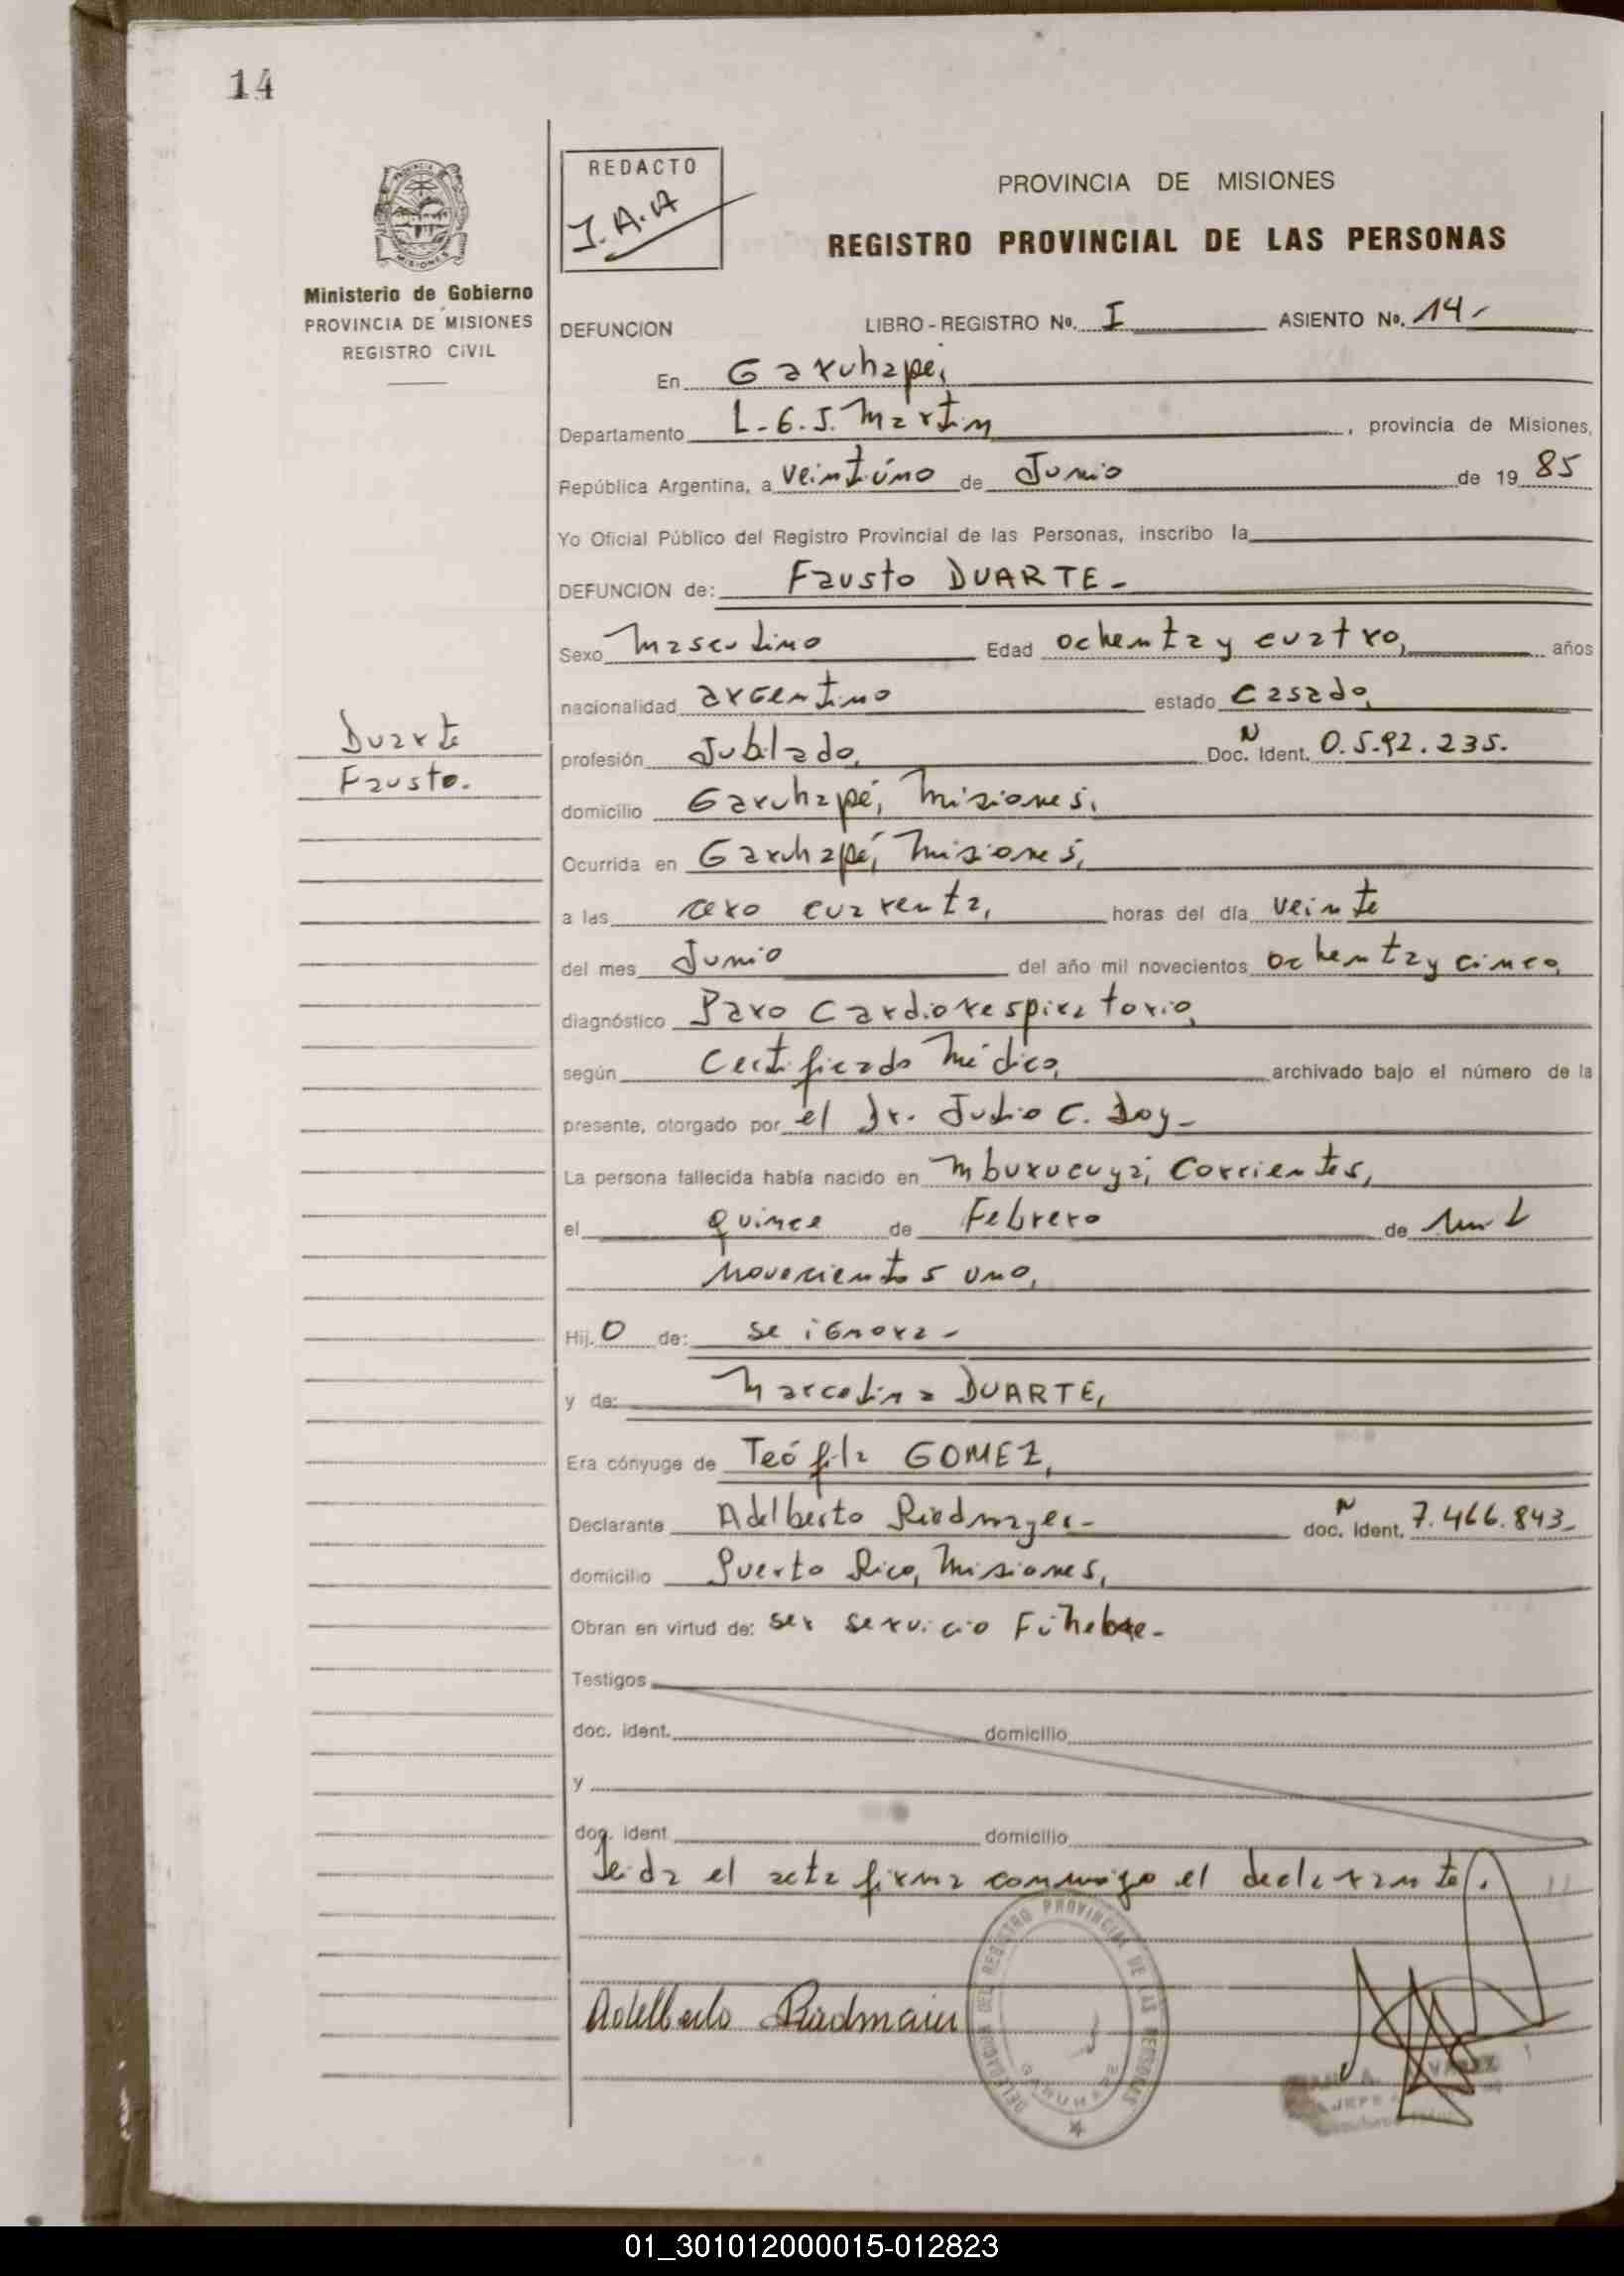 14
REDACTO
J.A.A
PROVINCIA DE MISIONES
REGISTRO PROVINCIAL DE LAS PERSONAS
PROVINCIA
MISIONES
Ministerio de Gobierno
PROVINCIA DE MISIONES
REGISTRO CIVIL
DEFUNCION LIBRO - REGISTRO Nº. I ASIENTO Nº. 14.-
En Garuhapé,
Departamento L.G.S. Martin, provincia de Misiones,
República Argentina, a veintiúno de Junio de 19 85
Yo Oficial Público del Registro Provincial de las Personas, inscribo la
DEFUNCION de: Fausto DUARTE-
Sexo Masculino Edad ochenta y cuatro, años
nacionalidad argentino estado casado,
Duarte
Fausto.
profesión Jubilado, Nº Doc. Ident. 0.592.235.
domicilio Garuhapé, Misiones,
Ocurrida en Garuhapé, Misiones,
a las cero cuarenta, horas del día veinte
del mes Junio del año mil novecientos ochenta y cinco,
diagnóstico Paro Cardiorespiratorio,
según Certificado Médico, archivado bajo el número de la
presente, otorgado por el Dr. Julio C.
La persona fallecida había nacido en Mburucuyá, Corrientes,
el quince de Febrero de mil
novecientos uno,
Hij. o de: se ignora-
y de: Marcelina DUARTE,
Era cónyuge de Teófila GOMEZ,
Declarante Adelberto Riedmayer- N doc. Ident. 7.466.843-
domicilio Puerto Rico, Misiones,
Obran en virtud de: ser servicio Fúnebre-
Testigos
doc. ident. domicilio
y
doc. ident domicilio
Leida el acta firma conmigo el declarante.
Adelberto Riedmaier
DELEGACION DEL REGISTRO PROVINCIAL DE LAS PERSONAS
GARUHAPE
JEFE
01_301012000015-012823